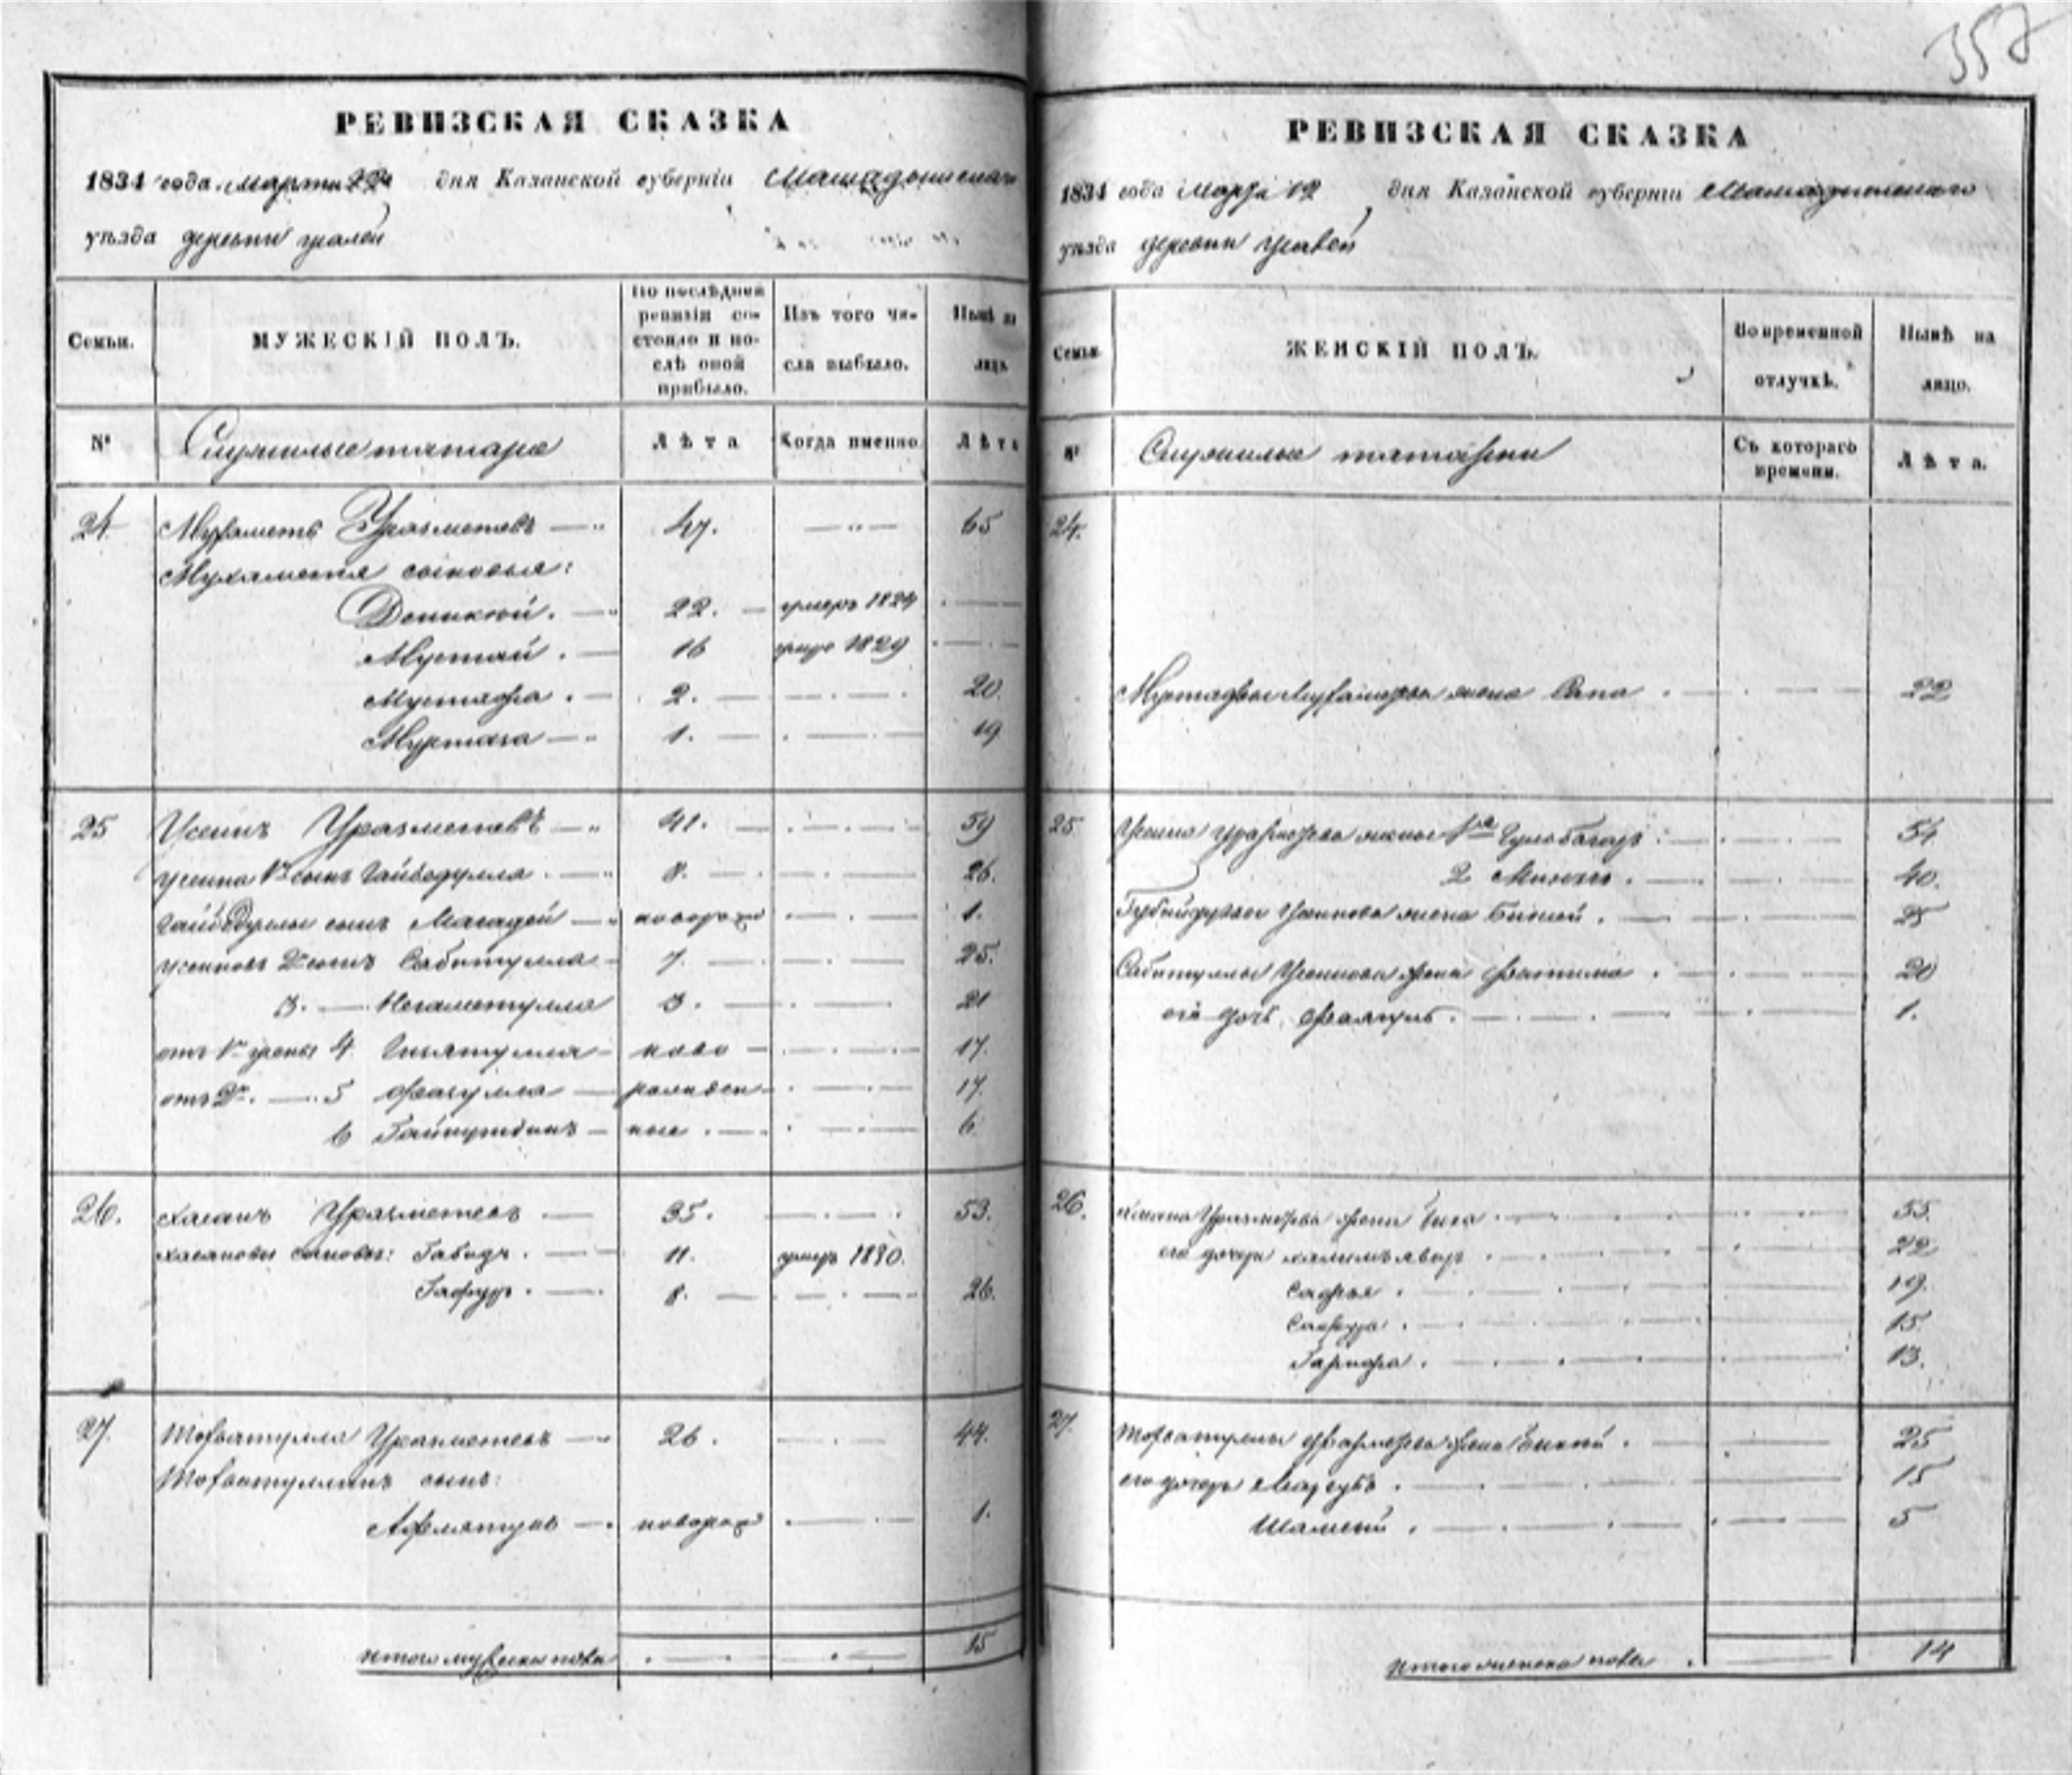 357
РЕВИЗСКАЯ СКАЗКА
1834 года марта 22 дня Казанской губернiи Мамадышскаго
уѣзда деревни
Семьи.
МУЖЕСКIЙ ПОЛЪ.
По послѣдней ревизiи состояло и послѣ оной прибыло.
Изъ того числа выбыло.
Нынѣ на лицо
№
Служилые татара
Лѣта
Когда именно
Лѣта
24 Мухаметъ Уразметевъ 47. 65
Мухаметя сыновья:
22. умеръ 1824
Мустай. 16 1829
Мустафа. 2. 20.
Муртаза 1. 19
25 Усеинъ Уразметевъ 41. 59
Усеина 1й сынъ Гайбедулла 8. 26.
Гайбедуллы сынъ Магадей новорож 1.
Усеиновъ 2й сынъ Сабитулла 7. 25.
3. Негаметулла 3. 21
отъ 1й жены 4 ново 17.
отъ 2й. 5 рожден 17.
6 ные. 6
26. Хасанъ Уразметевъ 35. 53.
Хасановы сыновья: 11. умеръ 1830.
Гафуръ. 8. 26.
27. Тохватулла Уразметевъ 26. 44.
Тохватуллинъ сынъ:
Афлятунъ новорож 1.
Итого мужеска пола 15
РЕВИЗСКАЯ СКАЗКА
1834 года Марта 12 дня Казанской губернiи Мамадышскаго
уѣзда деревни
Семьи.
ЖЕНСКIЙ ПОЛЪ.
Во временной отлучкѣ.
Нынѣ на лицо.
№
Служилые татарки
Съ котораго времени.
Лѣта.
24.
Мустафы Мухаметева жена 22
25. Усеина Уразметева жены 1я 54
2 40.
Усеинова жена 25
Сабитуллы Усеинова жена Фатима 20
его дочь 1.
26. Хасана Уразметева жена 55.
его дочери 22
Сафья. 19.
15.
13.
27. Тохватуллы Уразметева жена 25
его дочери 15
5
Итого женска пола 14